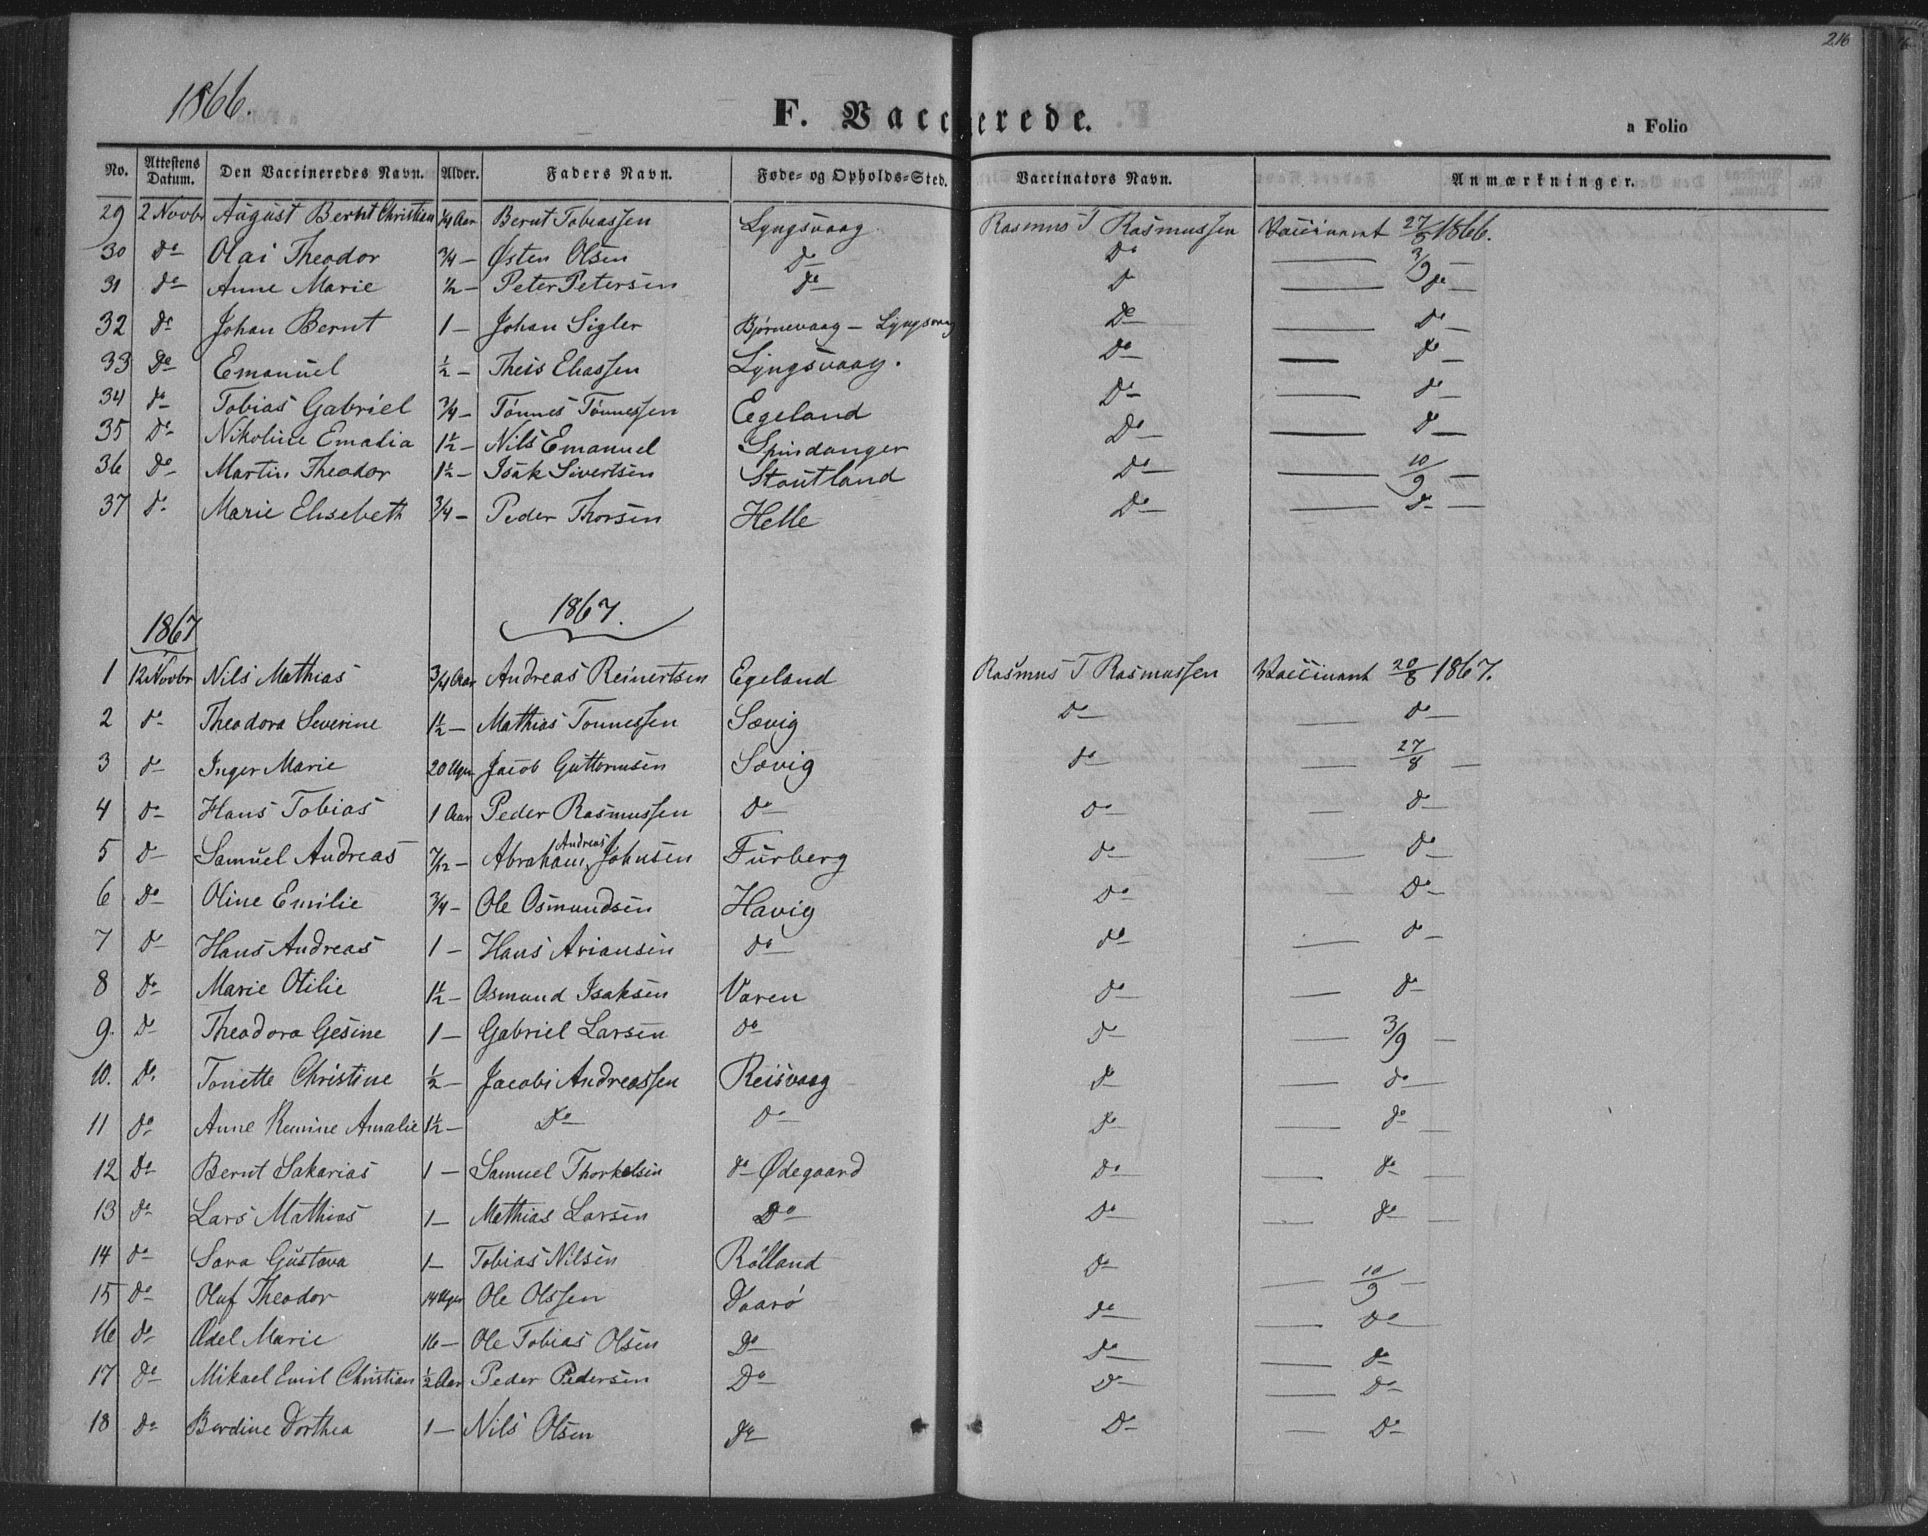 216
1866.
F. Vaccinerede.
a Folio
No. Attestens Datum. Den Vaccineredes Navn. Alder. Faders Navn. Føde- og Opholds-Sted. Vaccinators Navn. Anmærkninger.
29 2 Novbr August Bernt Christian 1/4 Aar Bernt Tobiassen Lyngsvaag Rasmus T Rasmussen Vaccineret 27/8 1866.
30 Do Olai Theodor 3/4 — Østen Olsen Do Do — 3/9 —
31 do Anne Marie 1/2 — Peter Petersen do D — do —
32 Do Johan Bernt 1 — Johan Sigler Bjørnevaag — Lyngsvaag Do — Do —
33 Do Emanuel 1/2 — Theis Eliassen Lyngsvaag. Do — do —
34 do Tobias Gabriel 3/4 — Tønnes Tønnessen Egeland Do — do —
35 Do Nikoline Emalia 1 1/2 — Nils Emanuel Spindanger Do — D —
36 Do Martin Theodor 1 1/2 — Isak Sivertsen Stoutland Do — 10/9 —
37 do Marie Elisebeth 3/4 — Peder Thorsen Helle Do — do —
1867 1867.
1 12 Novbr Nils Mathias 3/4 Aar Andreas Reinertsen Egeland Rasmus T Rasmussen Vaccineret 20/8 1867.
2 do Theodora Severine 1 1/2 — Mathias Tønnessen Sævig Do — Do —
3 do Inger Marie 20 Uger Jacob Guttormsen Sævig do — 27/8 —
4 do Hans Tobias 1 Aar Peder Rasmussen Do Do — do —
5 D— Samuel Andreas 7/12 — Abraham Andreas Johnsen Furberg do — Do —
6 Do Oline Emilie 3/4 — Ole Osmundsen Havig Do — Do —
7 D— Hans Andreas 1 — Hans Ariansen do do — do —
8 Do Marie Otilie 1 1/2 — Osmund Isaksen Varen do — do —
9. Do Theodora Gesine 1 — Gabriel Larsen do D— — 3/9 —
10. Do Tonette Christine 1/2 — Jacobi Andreassen Reisvaag do — do —
11 do Anne Remine Amalie 1 1/2 — Do Do Do — do —
12 Do Bernt Sakarias 1 — Samuel Thorkelsen do — Ødegaard Do — do —
13 do Lars Mathias 1 — Mathias Larsen Do Do — do —
14 do Sara Gustava 1 — Tobias Nilsen Rølland Do — 10/9 —
15 do Oluf Theodor 14 Uger Ole Olssen Vaarø do — Do —
16 do Adel Marie 16 — Ole Tobias Olsen Do Do — do
17 do Mikael Emil Christian 1/2 Aar Peder Pedersen Do Do — Do
18 Do Berdine Dorthea 1 — Nils Olsen do Do — Do